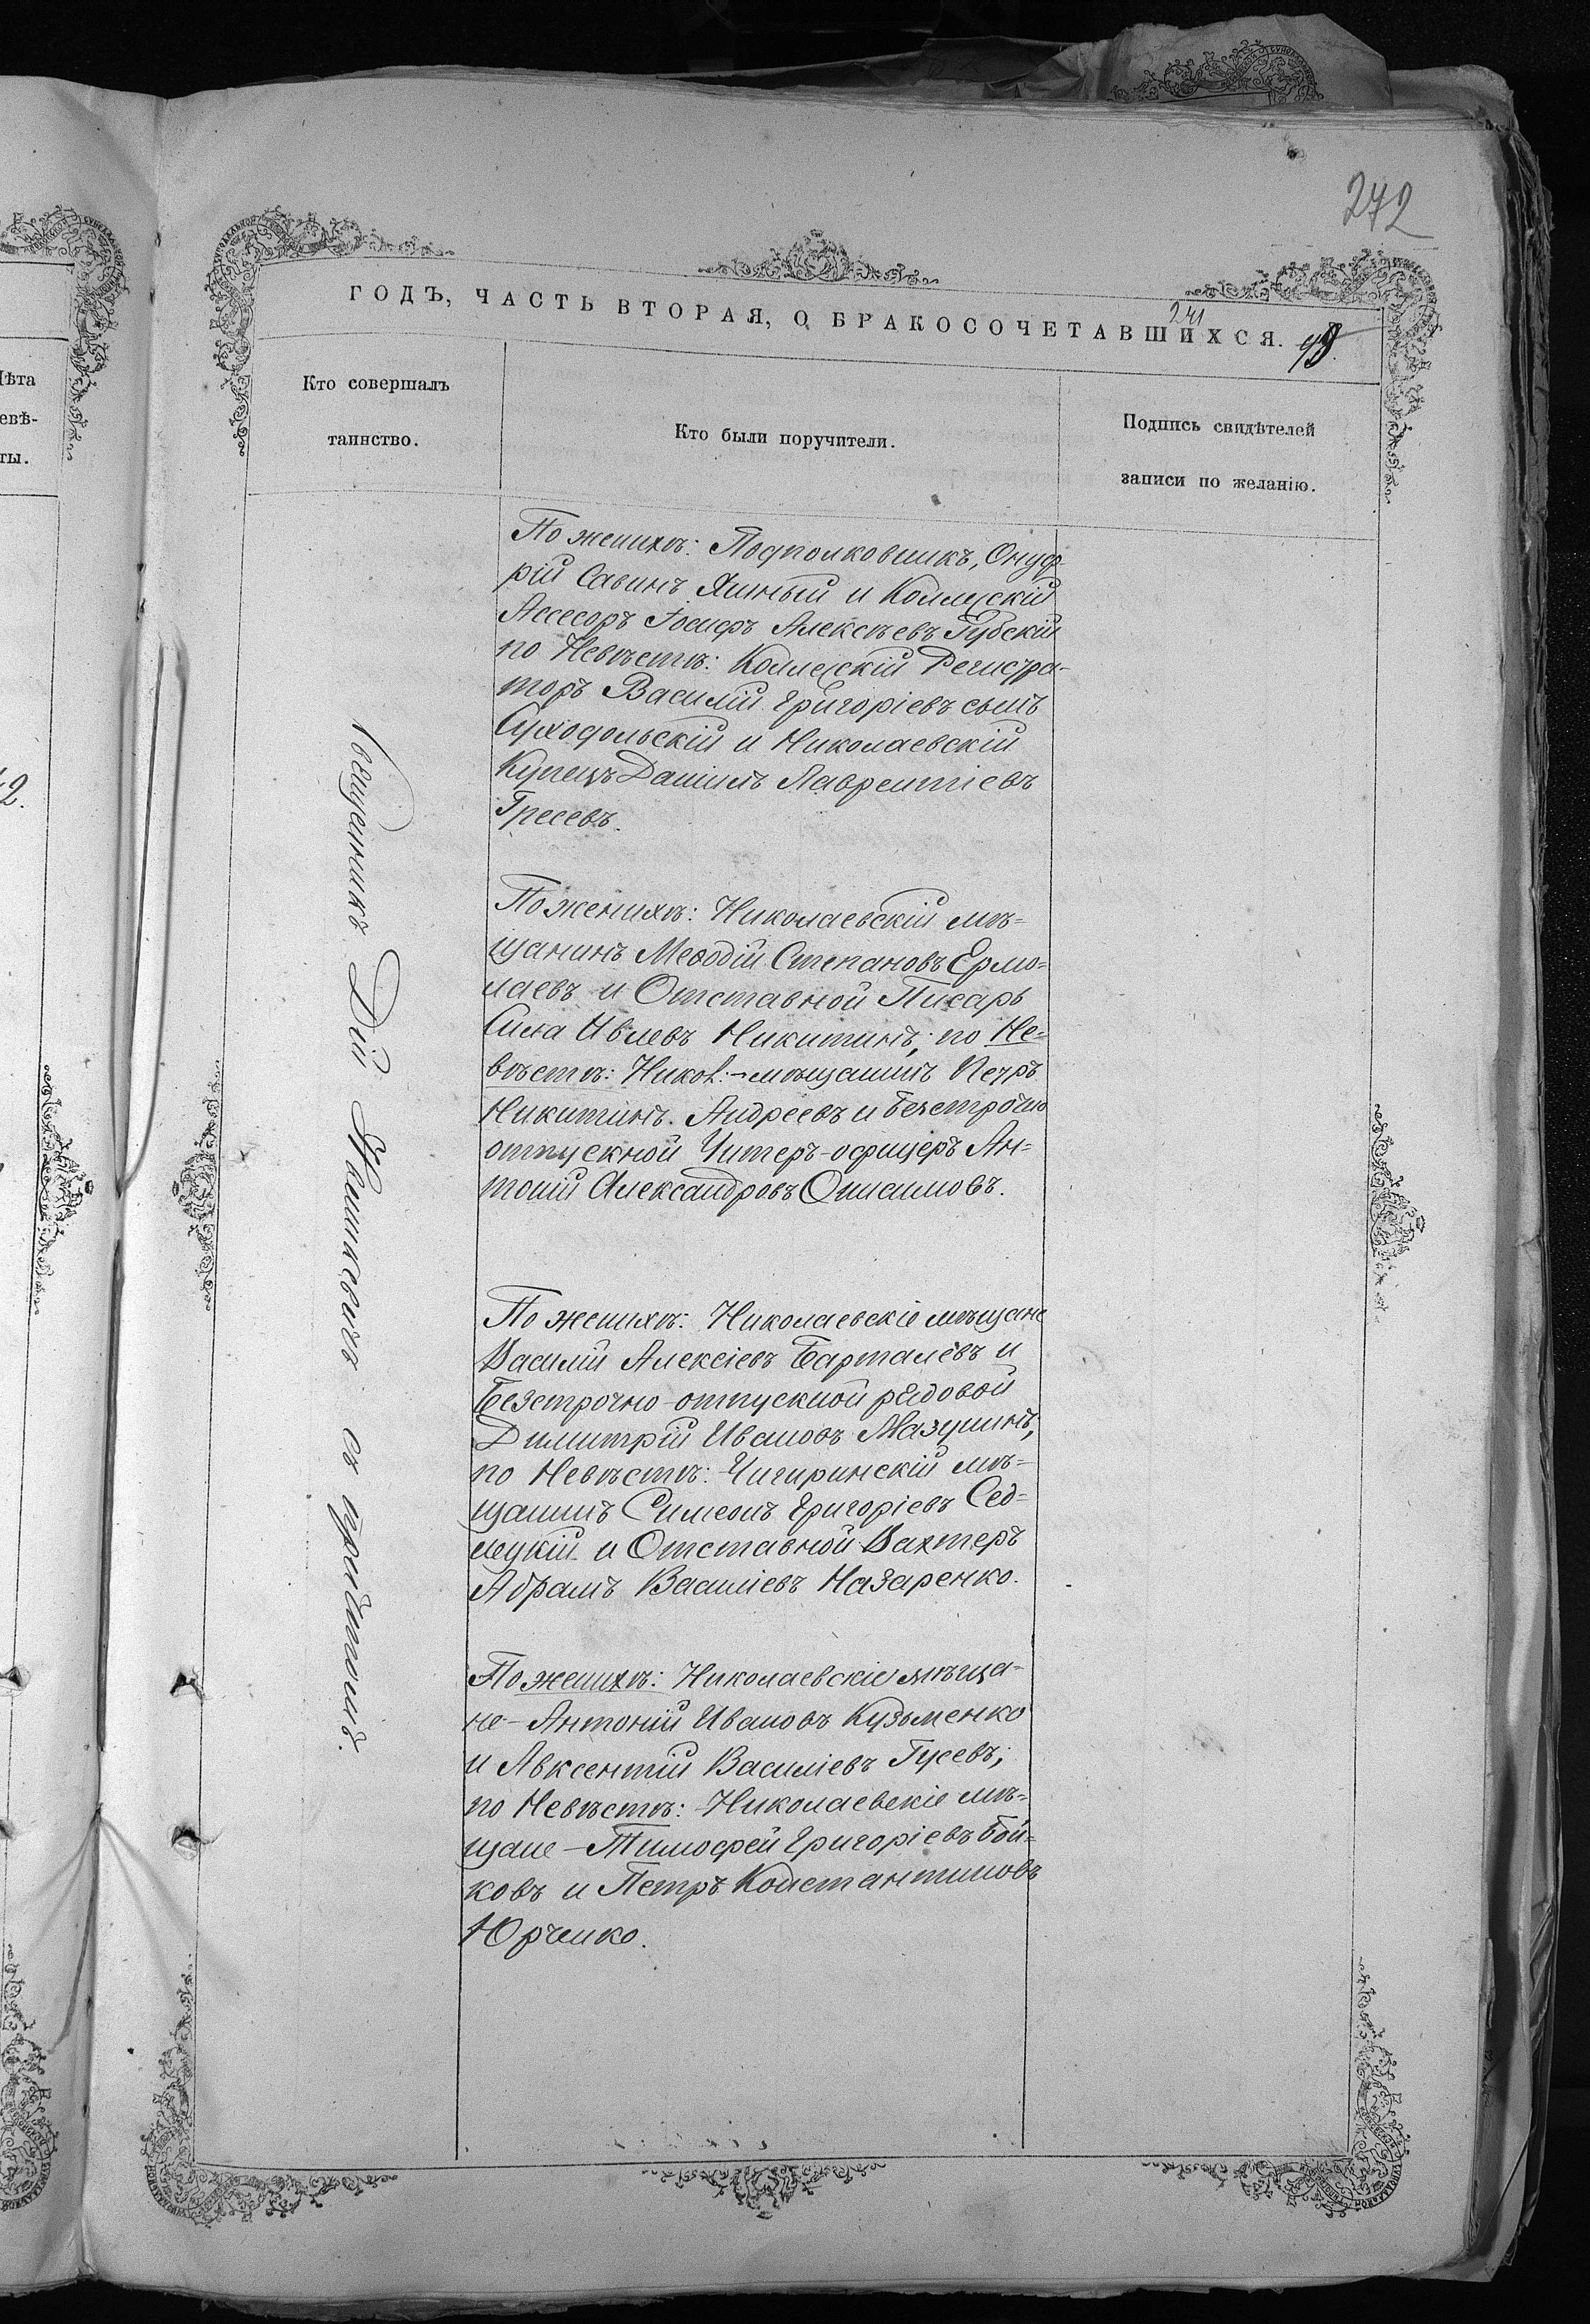 272
ГОДЪ, ЧАСТЬ ВТОРАЯ, О БРАКОСОЧЕТАВШИХСЯ.
241
Кто совершалъ
таинство.
Кто были поручители.
Подпись свидѣтелей
записи по желанію.
Лѣта
евѣ-
ты.
42.
По женихѣ: Подполковникъ, Онуф-
рій Савинъ Ялиный и Коллежскій
Ассесоръ Іосифъ Алексѣевъ Губскій
по Невѣстѣ: Коллежскій Регистра-
торъ Василій Григоріевъ сынъ
Суходольскій и Николаевскій
Купецъ Даніилъ Лаврентіевъ
Гресевъ.
По женихѣ: Николаевскій мѣ-
щанинъ Меѳодій Степановъ Ермо-
лаевъ и Отставной Писарь
Сила Ивлевъ Никитинъ; по Не-
вѣстѣ: Никол:-мѣщанинъ Петръ
Никитинъ Андреевъ и безстрочно
отпускной Унтеръ-офицеръ Ан-
тоній Александровъ Онисимовъ.
По женихѣ: Николаевскіе мѣщане
Василій Алексіевъ Барталёвъ и
Безстрочно-отпускной рядовой
Димитрій Ивановъ Мазунинъ,
по Невѣстѣ: Чигиринскій мѣ-
щанинъ Симеонъ Григоріевъ Сед-
лецкій и Отставной Вахтеръ
Абрамъ Василіевъ Назаренко.
По женихѣ: Николаевскіе мѣща-
не - Антоній Ивановъ Кузьменко
и Авксентій Василіевъ Гусевъ;
по Невѣстѣ: Николаевскіе мѣ-
щане - Тимофей Григоріевъ Бой-
ковъ и Петръ Константиновъ
Юрченко.
Священникъ Дій Ивашкевичъ съ причтомъ.